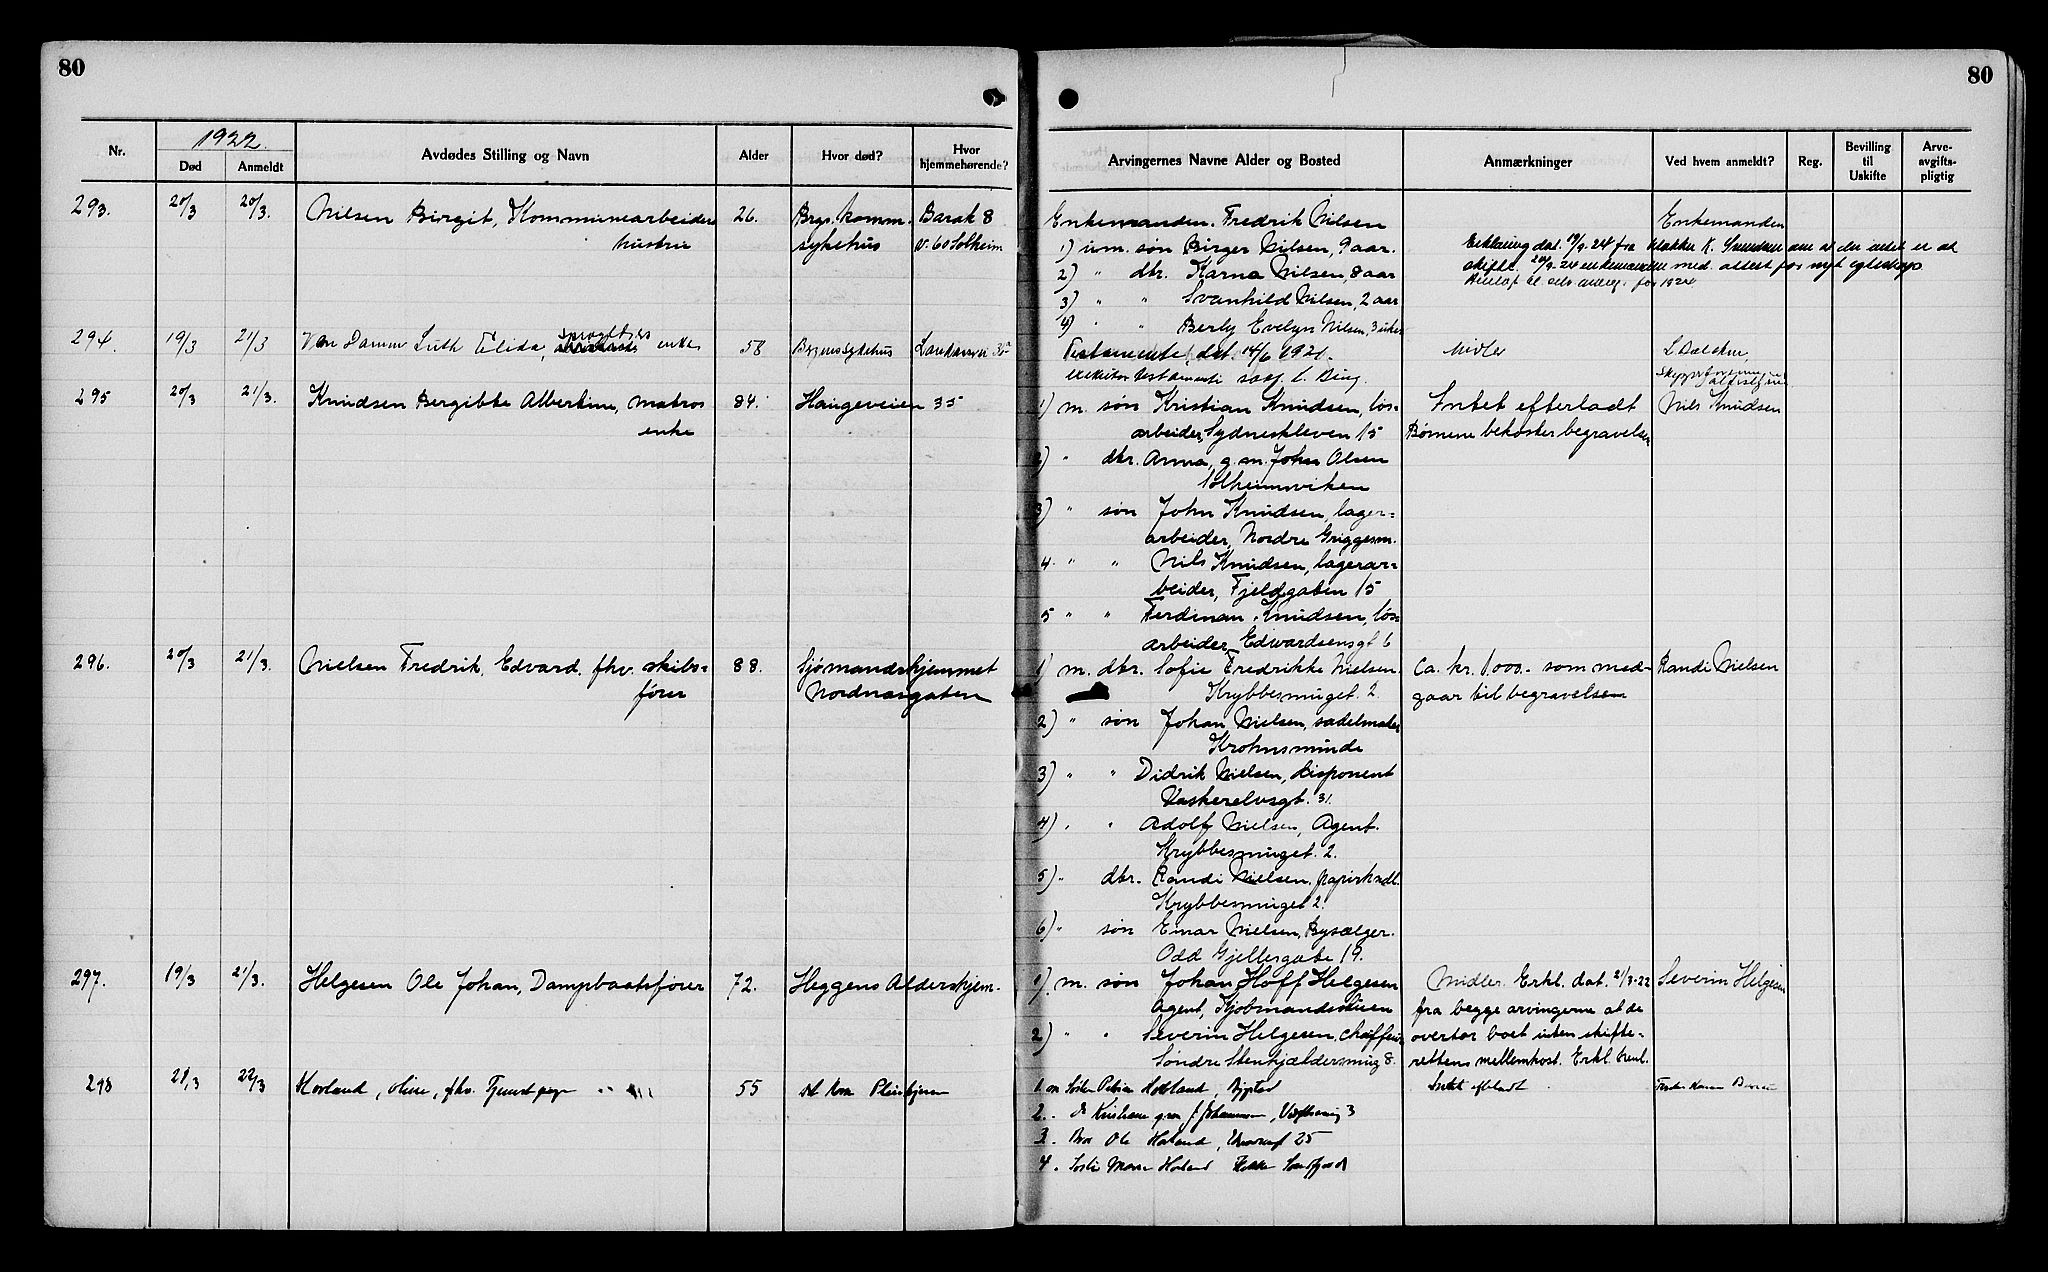 80
1922.
Nr.
Død
Anmeldt
Avdødes Stilling og Navn
Alder
Hvor død?
Hvor hjemmehørende?
293.
20/3
20/3.
Nilsen Birgit, Kommunearbeiders
hustru
26.
Brgs. komm.
sykehus
Barak 8
v. 60 Solheim
294.
19/3
21/3
Van Damm Ruth Elida, enke
58
Bergens sykehus
295
20/3
21/3.
Knudsen Bergitte Albertine, matros
enke
84.
Haugeveien 35
296.
20/3
21/3.
Nielsen Fredrik, Edvard, fhv. skibs=
fører
88.
Sjømandshjemmet
Nordnæsgaten
297.
19/3
21/3.
Helgesen Ole Johan, Dampbaatsfører
72.
Heggens Aldershjem.
298
21/3
22/3
Hovland, Oline, fhv.
55
80
Arvingernes Navne Alder og Bosted
Anmærkninger
Ved hvem anmeldt?
Reg.
Bevilling til Uskifte
Arve-avgifts-pligtig
Enkemanden. Fredrik Nilsen
1) u.m. søn Birger Nilsen, 9 aar.
2) " dtr. Karna Nilsen, 8 aar
3) " " Svanhild Nilsen, 2 aar
4) " " Berly Evelyn Nilsen, 3 uker
Enkemanden
Erklæring dat. 19/9.24 fra K. om at der intet er at
skifte. 20/9-24 enkemanden med. attest for nyt egteskap
Testamente dat. 14/6 1921.
executor testamenti sagf. C. Bing.
Midler
1) m. søn Kristian Knudsen, løs-
arbeider, Sydneskleven 15
2) " dtr. Anna, g.m. John Olsen
Solheimsviken
3) " søn John Knudsen, lager=
arbeider, Nordre Griggesm.
4. " " Nils Knudsen, lagerar=
beider, Fjeldgaten 15
5 " " Ferdinan. Knudsen, løs-
arbeider, Edwardsensgt 6
Intet efterladt
Børnene bekoster begravelsen
Nils Knudsen
1) m. dtr. Sofie Fredrikke Nielsen
Krybbesmuget. 2
2) " søn Johan Nielsen, sadelmaker
Krohnsminde
3) " " Didrik Nielsen, disponent
Vaskerelvsgt. 31.
4) " " Adolf Nielsen, Agent.
Krybbesmuget. 2.
5) " dtr. Randi Nielsen, papirhndl.
Krybbesmuget 2.
6) " søn Einar Nielsen, Bysælger.
Odd Gjellesgate 19.
Ca. kr. 1000.- som med-
gaar til begravelsen
Randi Nielsen
1). m. søn Johan Hoff Helgesen
Agent, Kjøbmandsstuen
2) " " Severin Helgesen, chaffeur,
Søndre Stenkjældersmug 8.
Midler. Erkl. dat. 21/3-22
fra begge arvingerne at de
overtar boet uten skifte=
rettens mellemkost. Erkl. henl.
Severin Helgesen
1. Søster Petrine Hovland,
2. Kristiane g.m. J. Johannesen, 3
3. Bror Ole Hovland, 25
4. Marie Hovland
Intet efterladt